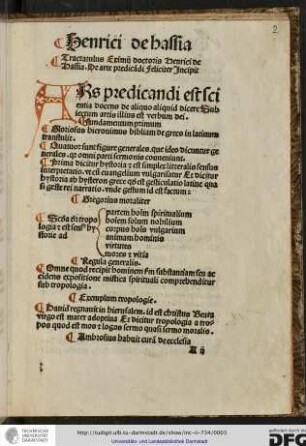 2
Henrici de hassia
Tractatulus Eximij doctoris Henrici de
Hassia. De arte predicãdi Feliciter Incipit
ARs predicandi est sci
entia docens de aliquo aliquid dicere Sub
iectum artis illius est verbum dei.
Fundamentum primum
Gloriosus hieronimus bibliam de greco in latinum
transtulit.
Quatuor sunt figure generales. que ideo dicuntur ge
nerales. qr omni parti sermonis conueniunt.
Prima dicitur hystoria
interpretatio. vt est euangelium vulgarisatur Et dicitur
hystoria ab hysteron grece
si geste rei narratio. vnde gestum id est factum:
Gregorius moraliter
partem bolm spiritualium
bolem solum nobilium
corpus bolu vulgarium
animam hominis
virtutes
mores z vitia
Regula generalis.
Omne quod recipit hominem
cidens expositione mistica spirituali comprehenditur
sub tropologia.
Exemplum tropologie.
Dauid regnauit in hierusalem. id est christus Beata
virgo est mater adoptiua Et dicitur tropologia a tro
pos quod est mos z logos sermo quasi sermo moralis.
Ambrosius habuit curã de ecclesia
TECHNISCHE
UNIVERSITÄT
DARMSTADT
http://tudigit.ulb.tu-darmstadt.de/show/inc-ii-734/0003
Universitäts- und Landesbibliothek Darmstadt
gefördert durch die
DFG